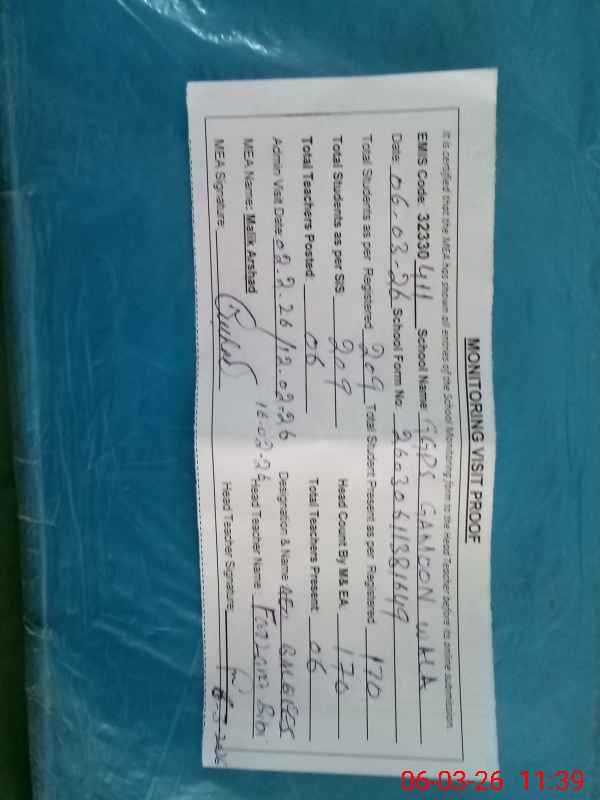 MONITORING VISIT PROOF
It is certified that the MEA has shown all entries of the School Monitoring form to the Head Teacher before its online submission.
EMIS Code: 32330411 School Name: GGPS GAMOON WALA
Date: 06-03-26 School Form No: 26030611381649
Total Students as per Registered 209 Total Student Present as per Registered 170
Total Students as per SIS: 209 Head Count By M& EA 170
Total Teachers Posted: 06 Total Teachers Present 06
Admin Visit Date: 02.2.26/12.02.26 Designation & Name AEO
16-02-26
MEA Name: Malik Arshad Head Teacher Name: Bibi
MEA Signature: Head Teacher Signature:
06-03-26 11:39